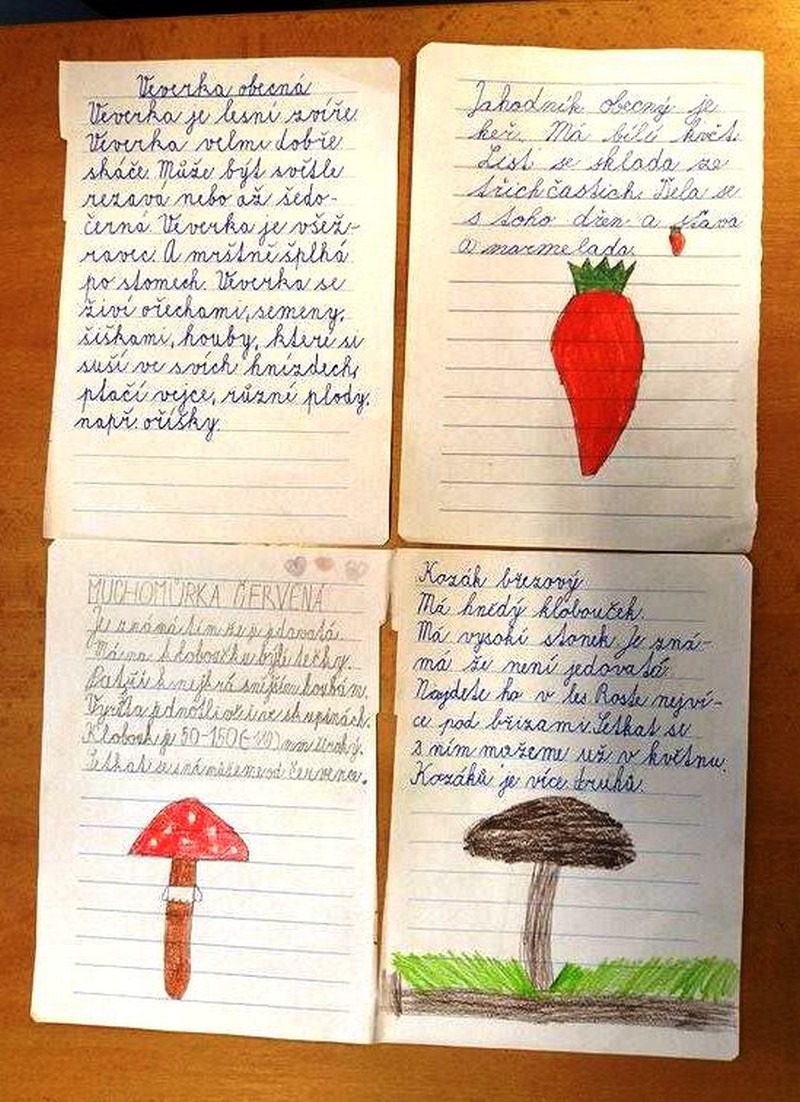 Veverka obecná
Veverka je lesní zvíře.
Veverka velmi dobře
skáče. Může být světle
rezavá nebo až šedo-
černá. Veverka je všež-
ravec. A mrštně šplhá
po stomech. Veverka se
živí ořechami, semeny,
šiškami, houby, které si
suší ve svích hnízdech,
ptačí vejce, různé plody.
např. oříšky.
Jahodník obecný je
keř. Má bílí květ.
List se sklada ze
třich častich. Dela se
s toho džen a šťava
a marmelada.
MUCHOMŮRKA ČERVENÁ
Je známá tím že je jdovatá.
Má na klobouku býlé tečky.
Patří k nejkrásnějším houbám.
Vyrůsta jednotlivě i ve skupinách.
Klobouk je 50-150 mm široký.
Setkat se sná můžeme od července.
Kozák březový
Má hnědý klobouček.
Má vysoki stonek Je zná-
má že není jedovatá.
Najdete ho v les Roste nejví-
ce pod břízami. Setkat se
s ním možeme už v květnu.
Kozáků je více druhů.